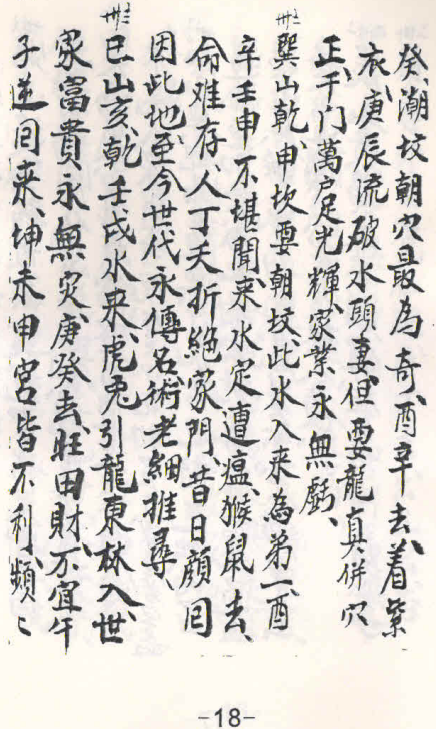 癸潮坟朝穴最為奇酉辛去着紫
衣庚辰流破水頭妻但要龍真併穴
正千门萬户足光輝家業永無虧
卅二巽山乾申坎要朝坟此水入来為弟一酉
辛壬申不堪聞来水定遭瘟猴鼠去
命难存人丁夭折絕家門昔日顔回
因此地至今世代永傳名術老細推尋
卅三巳山亥乾壬戌水来虎兎引龍東林入世
家富貴永無灾庚癸去旺田財不宜午
子逆回来坤未申宮皆不利頻〻
-18-